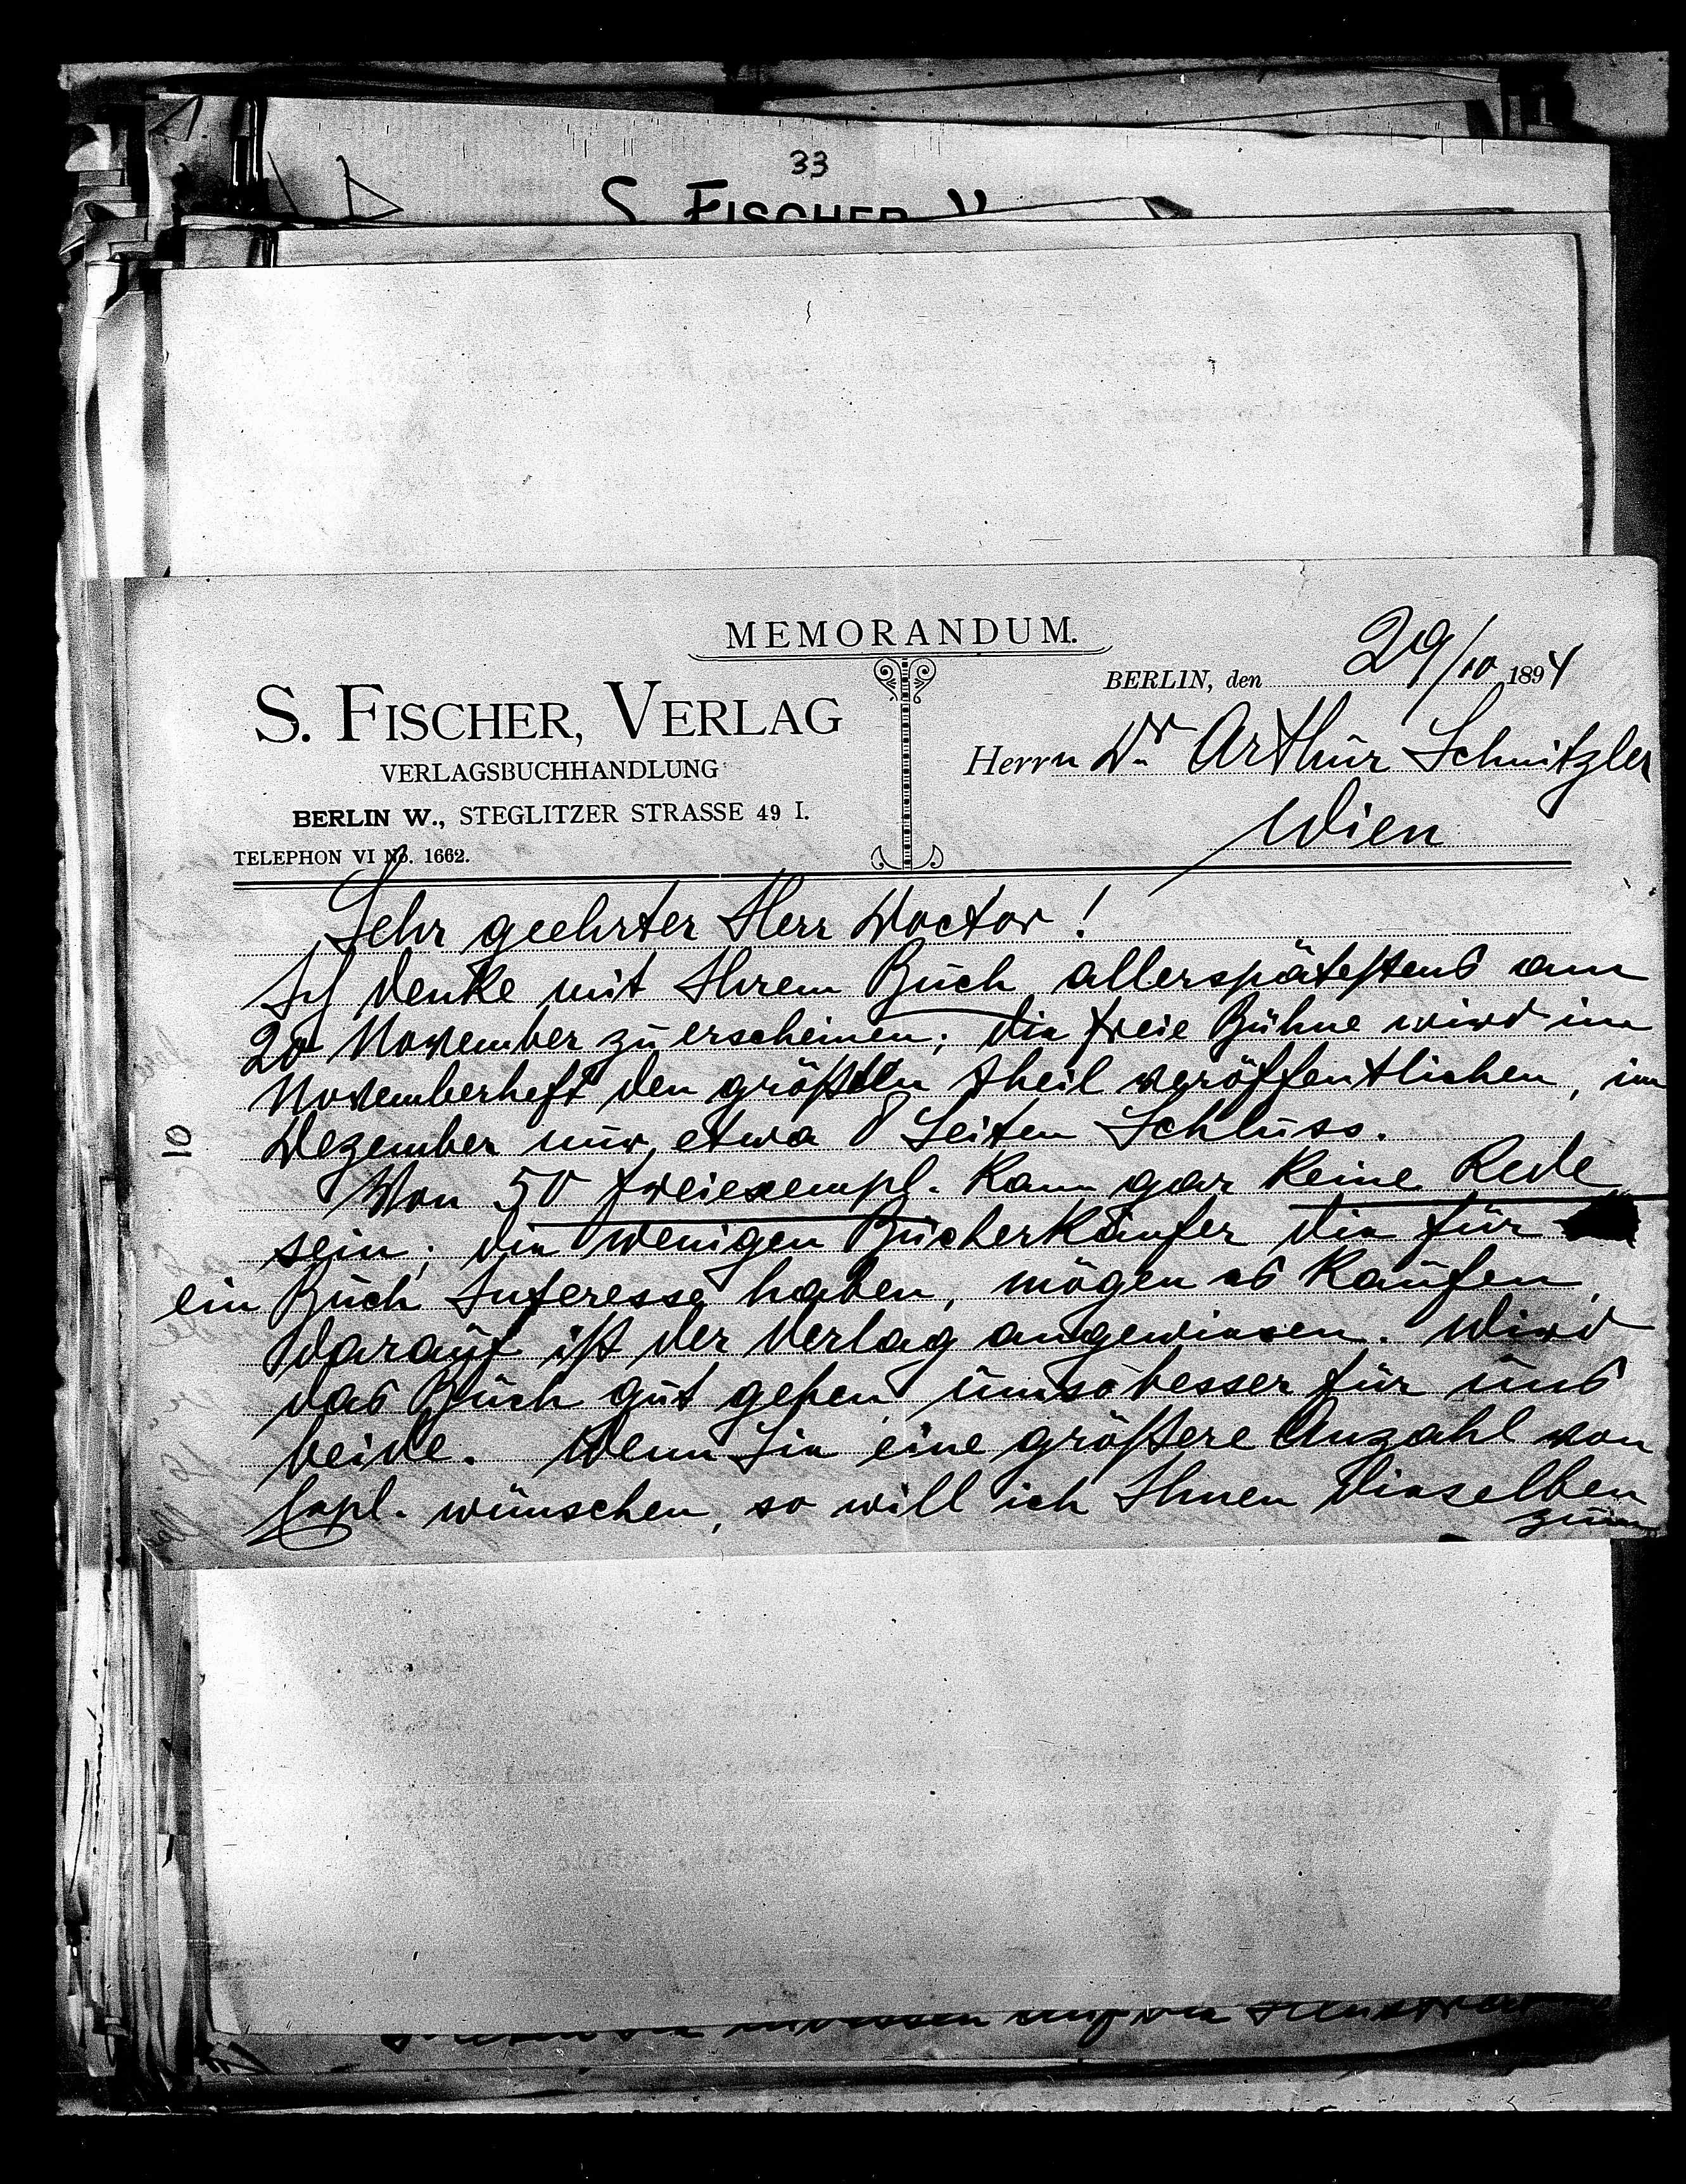 33
S. FISCHER V
MEMORANDUM.
BERLIN, den 29/10 1894
S. FISCHER, VERLAG
VERLAGSBUCHHANDLUNG
BERLIN W., STEGLITZER STRASSE 49 I.
TELEPHON VI No. 1662.
Herrn Dr Arthur Schnitzler
Wien
Sehr geehrter Herr Doctor!
Ich denke mit Ihrem Buch allerspätestens am
20 November zu erscheinen; die freie Bühne wird im
Novemberheft den größten Theil veröffentlichen, im
Dezember nur etwa 8 Seiten Schluss.
10
Von 50 Freiexempl. kann gar keine Rede
sein; die wenigen Bücherkäufer die für
ein Buch Interesse haben, mögen es kaufen,
darauf ist der Verlag angewiesen. Wird
das Buch gut gehen umso besser für uns
beide. Wenn Sie eine größere Anzahl von
Expl. wünschen, so will ich Ihnen dieselben
zum